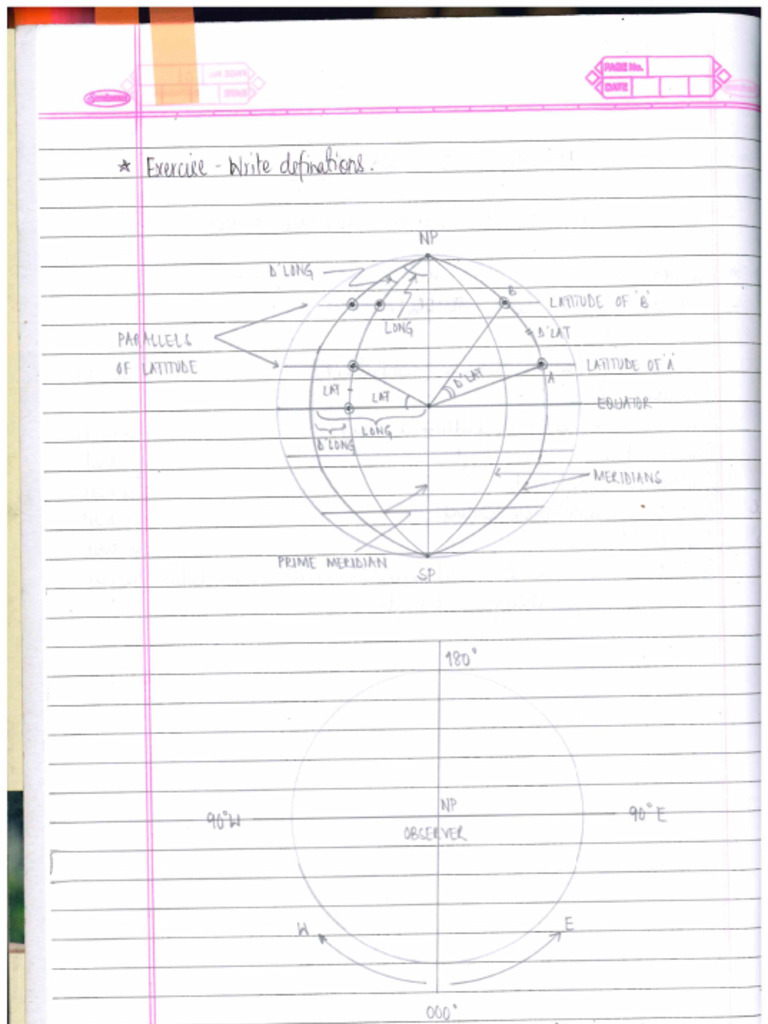 PAGE No.
DATE
★ Exercise - Write definations.
NP
D'LONG
B
LATITUDE OF 'B'
LONG
D'LAT
PARALLELS
OF LATITUDE
LATITUDE OF 'A'
D'LAT
A
LAT
LAT
EQUATOR
LONG
D'LONG
MERIDIANS
PRIME MERIDIAN
SP
180°
NP
90°W
90°E
OBSERVER
W
E
000°